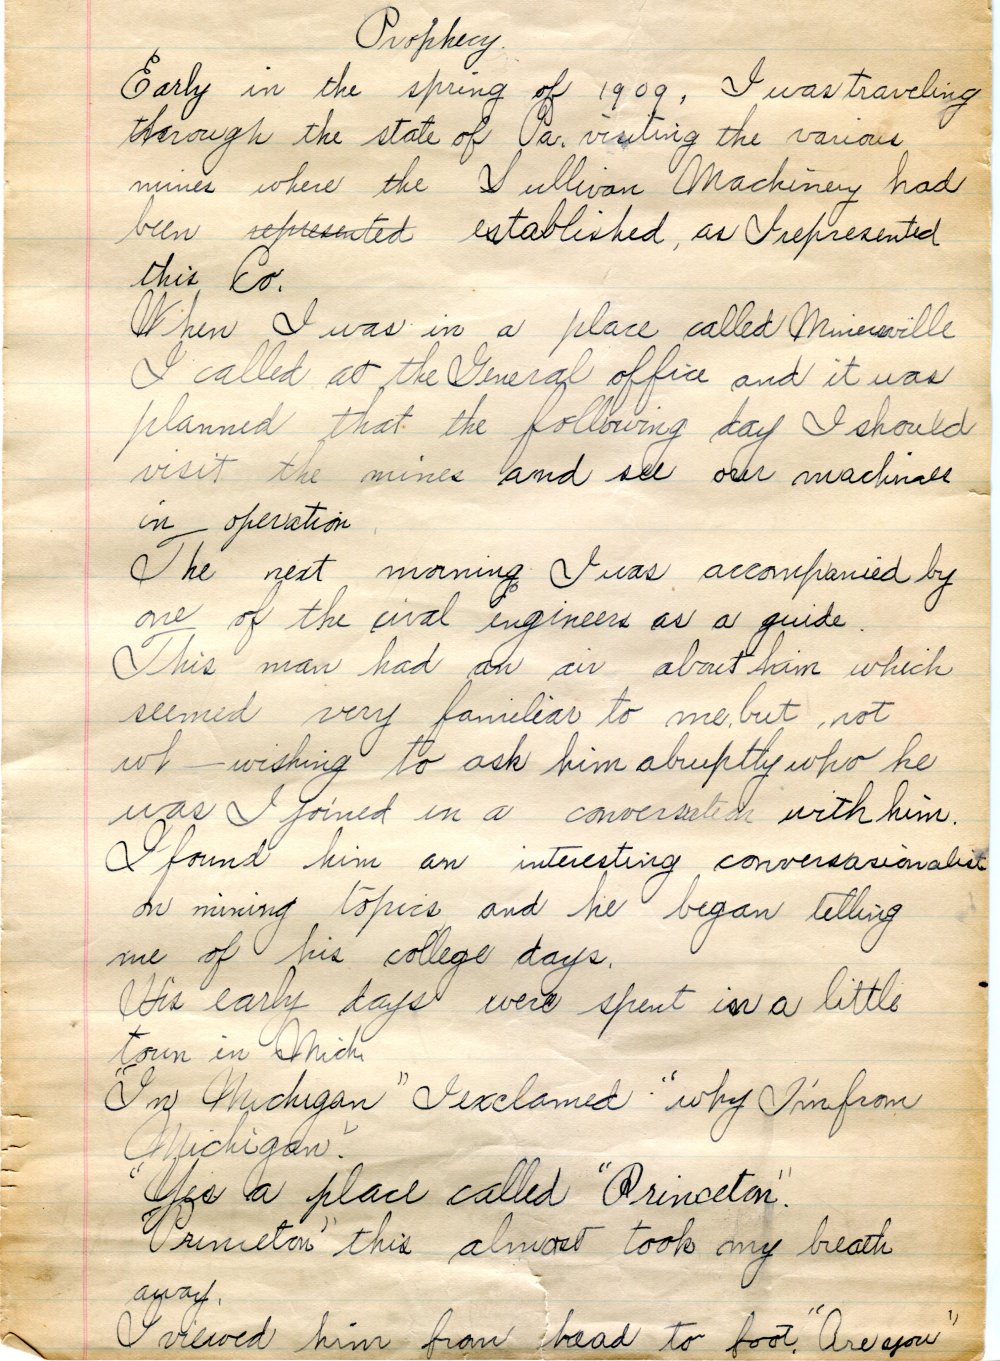 Prophecy.
Early in the spring of 1909, I was traveling
through the state of Pa. visiting the various
mines where the Sullivan Machinery had
been represented established, as I represented
this Co.
When I was in a place called Minersville
I called at the General office and it was
planned that the following day I should
visit the mines and see our machines
in operation
The next morning I was accompanied by
one of the civil engineers as a guide.
This man had an air about him which
seemed very familiar to me, but, not
wh—wishing to ask him abruptly who he
was I joined in a conversation with him.
I found him an interesting conversasionalist
on mining topics and he began telling
me of his college days.
His early days were spent in a little
town in Mich.
"In Michigan" I exclaimed "why I'm from
Michigan".
"Yes a place called "Princeton".
"Princeton" this almost took my breath
away.
I viewed him from head to foot. "Are you"